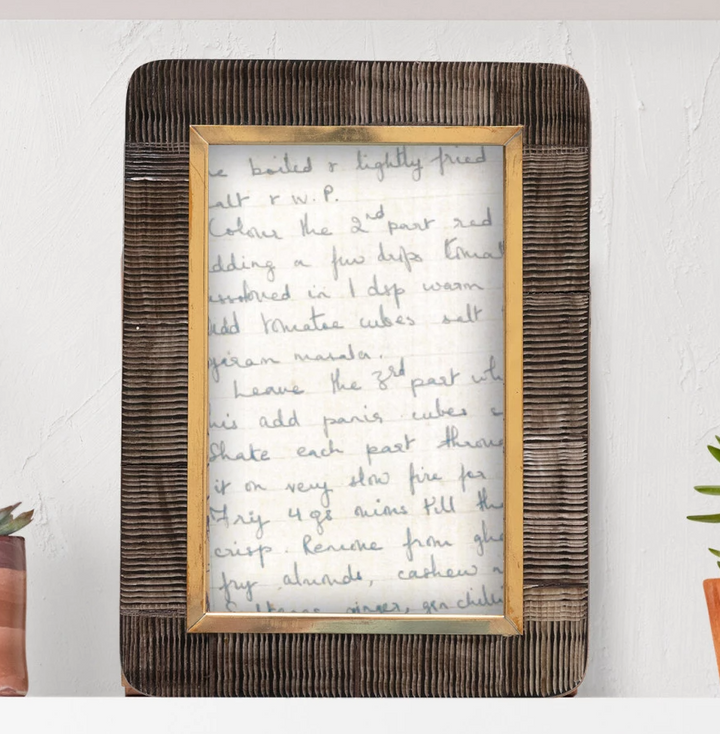 e boiled & lightly fried
alt & W.P.
Colour the 2nd part red
dding a few drops tomat
issolved in 1 dsp warm
add tomatoe cubes salt
garam masala.
Leave the 3rd part whi
his add panir cubes s
Shake each part throug
it on very slow fire for
Fry 4 gs onions till the
crisp. Remove from ghe
fry almonds, cashew n
Sultanas ginger, grn chilli